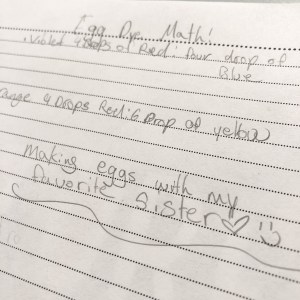 Egg Dye Math!
Violet 4 Drops of Red: four drop of
Blue
Orange 4 Drops Red: 6 Drop of yellow
Making eggs with my
favorite Sister